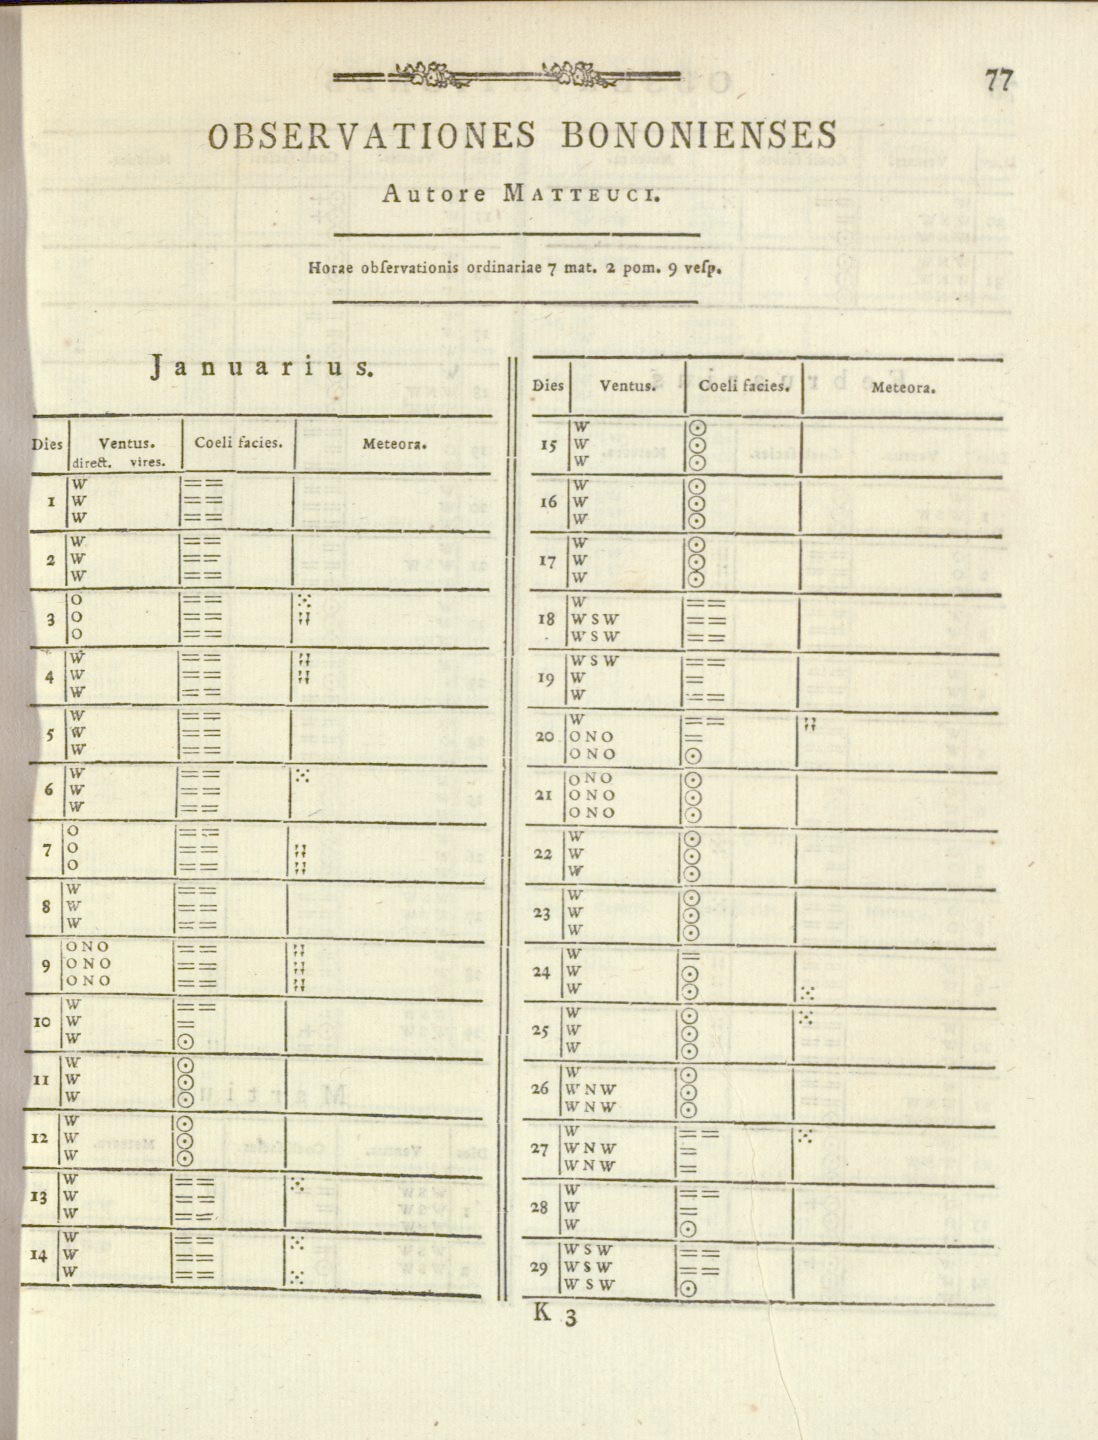 77
OBSERVATIONES BONONIENSES
Autore MATTEUCI.
Horae obſervationis ordinariae 7 mat. 2 pom. 9 veſp.
Januarius.
Dies Ventus. Coeli facies. Meteora.
direct. vires.
W = =
1 W = =
W = =
W = =
2 W = =
W = =
O = = ⁙
3 O = = ¦¦
O = =
W = = ¦¦
4 W = = ¦¦
W = =
W = =
5 W = =
W = =
W = = ⁙
6 W = =
W = =
O = =
7 O = = ¦¦
O = = ¦¦
W = =
8 W = =
W = =
ONO = = ¦¦
9 ONO = = ¦¦
ONO = = ¦¦
W = =
10 W =
W ☉
W ☉
11 W ☉
W ☉
W ☉
12 W ☉
W ☉
W = = ⁙
13 W = =
W = =
W = = ⁙
14 W = =
W = = ⁙
Dies Ventus. Coeli facies. Meteora.
W ☉
15 W ☉
W ☉
W ☉
16 W ☉
W ☉
W ☉
17 W ☉
W ☉
W = =
18 WSW = =
WSW = =
WSW = =
19 W =
W = =
W = = ¦¦
20 ONO =
ONO ☉
ONO ☉
21 ONO ☉
ONO ☉
W ☉
22 W ☉
W ☉
W ☉
23 W ☉
W ☉
W =
24 W ☉
W ☉ ⁙
W ☉ ⁙
25 W ☉
W ☉
W ☉
26 WNW ☉
WNW ☉
W = = ⁙
27 WNW =
WNW =
W = =
28 W =
W ☉
WSW = =
29 WSW = =
WSW ☉
K 3